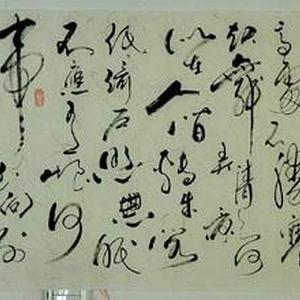 高處不勝寒
起舞弄清影何
似在人間轉朱閣
低綺戶照無眠
不應有恨何
事長向別